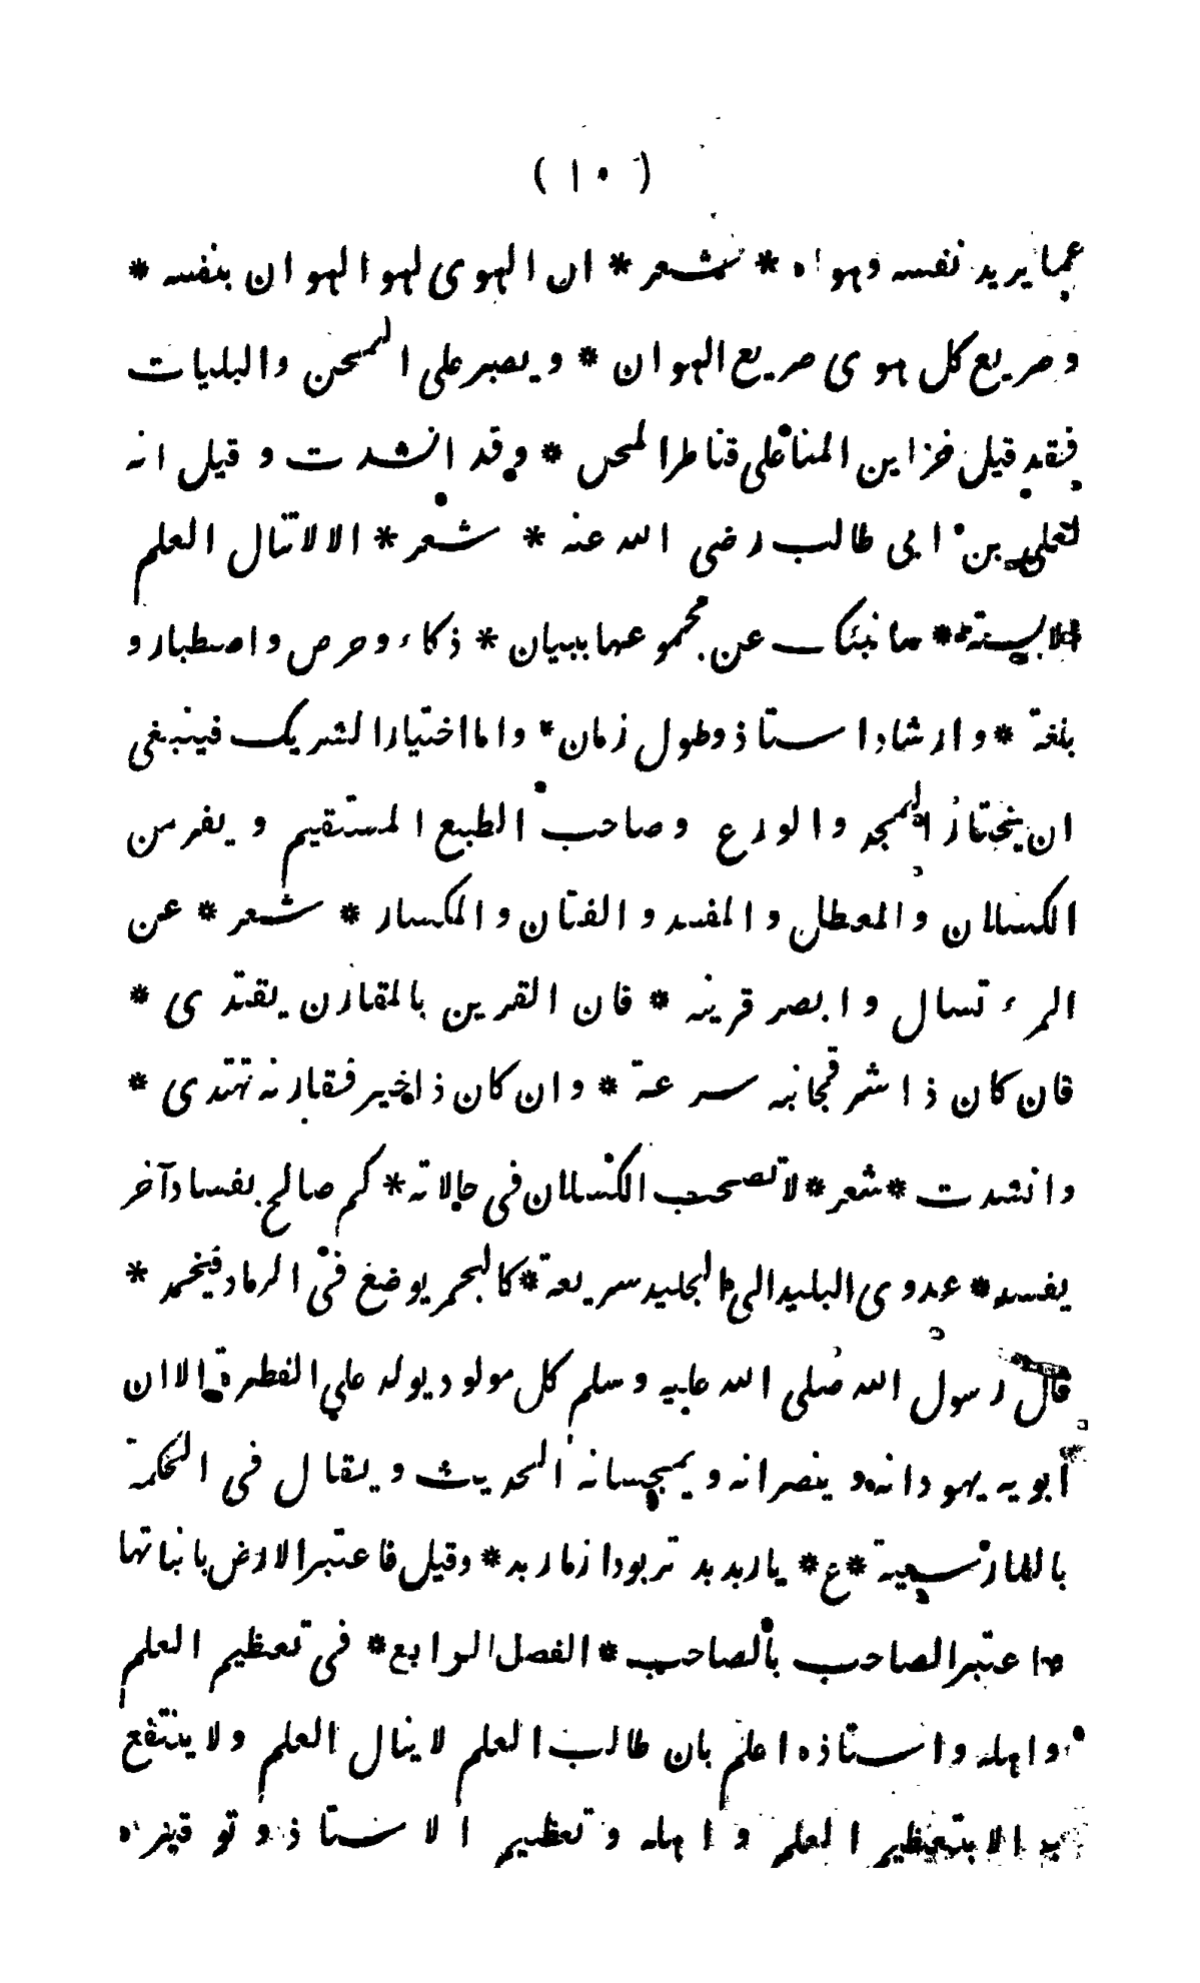 ( ١٠ )
عما يريد نفسه وهواه * شعر * ان الهوى لهو الهوان بنفسه *
وصريع كل هوى صريع الهوان * ويصبر على المحن والبليات
فقد قيل خزاين المنا على قناطر المحن * وقد انشدت وقيل انه
لعلى بن ابى طالب رضى الله عنه * شعر * الا لاتنال العلم
الا بستة * سانبئك عن مجموعها ببيان * ذكاء وحرص واصطبار و
بلغة * وارشاد استاذ وطول زمان * واما اختيار الشريك فينبغى
ان يختار المجد والورع وصاحب الطبع المستقيم ويفر من
الكسلان والمعطل والمفسد والفتان والمكسار * شعر * عن
المرء تسال وابصر قرينه * فان القرين بالمقارن يقتدى *
فان كان ذا شر فجانبه سرعة * وان كان ذا خير فقارنه تهتدى *
وانشدت * شعر * لا تصحب الكسلان فى حالاته * كم صالح بفساد آخر
يفسد * عدوى البليد الى الجليد سريعة * كالجمر يوضع فى الرماد فيخمد *
قال رسول الله صلى الله عليه وسلم كل مولود يولد على الفطرة الا ان
ابويه يهودانه وينصرانه ويمجسانه الحديث ويقال فى الحكمة
بالفارسية * ع * يار بد بد تر بود از مار بد * وقيل فاعتبر الارض بانباتها
واعتبر الصاحب بالصاحب * الفصل الرابع * فى تعظيم العلم
واهله واستاذه اعلم بان طالب العلم لا ينال العلم ولا ينتفع
به الا بتعظيم العلم واهله وتعظيم الاستاذ وتوقيره